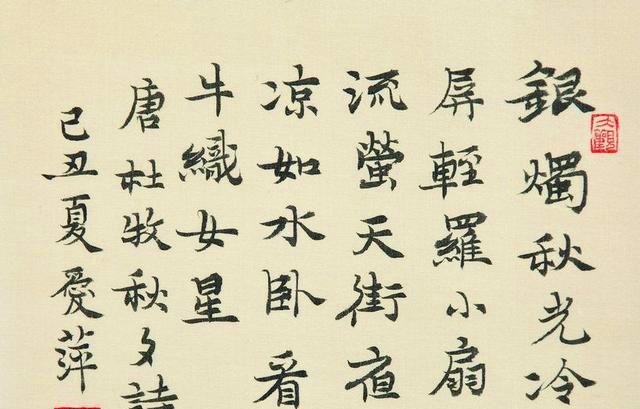 銀燭秋光冷
屏輕羅小扇
流螢天街夜
涼如水卧看
牛織女星
唐杜牧秋夕詩
己丑夏愛萍